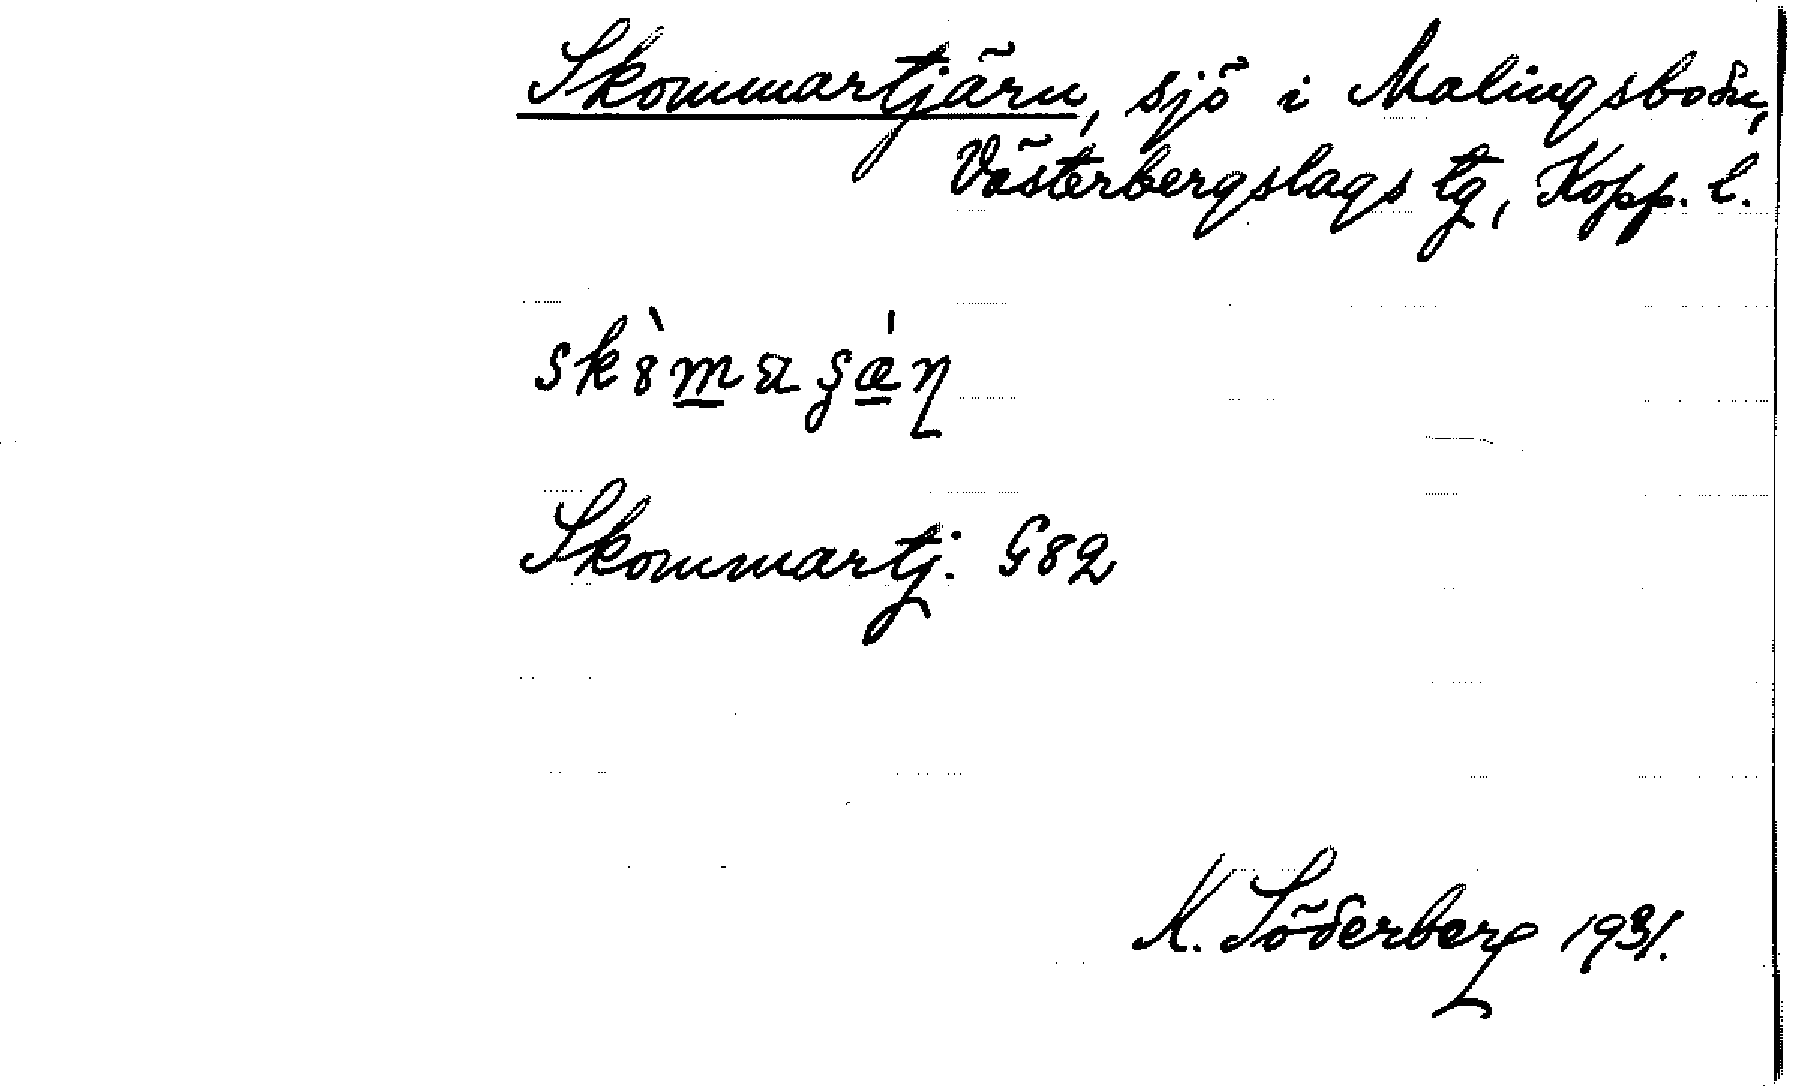 Skommartjärn, sjö i Malingsbo sn,
Västerbergslags tg, Kopp. l.
Skommartj. G82
K. Söderberg 1931.